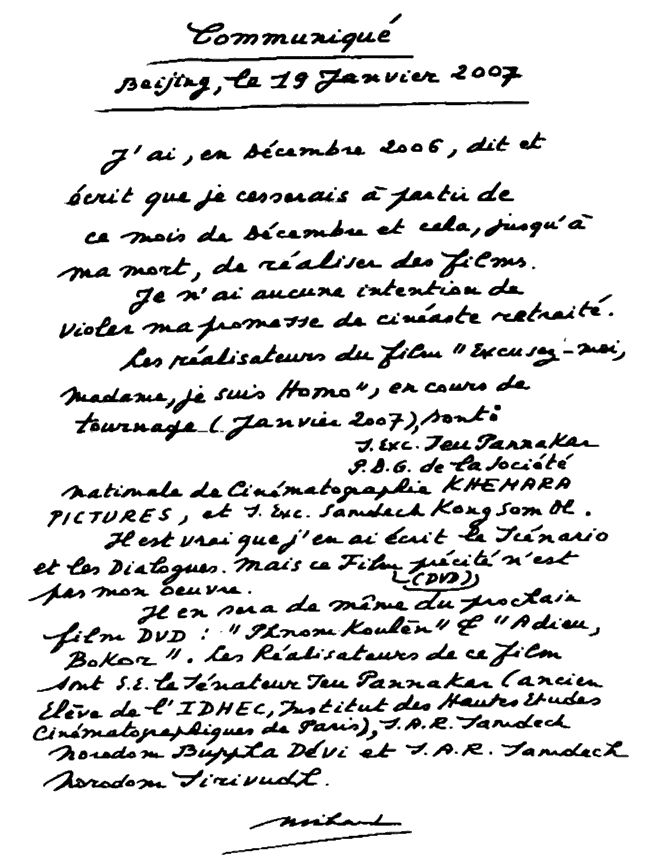 Communiqué
Beijing, le 19 Janvier 2007
J'ai, en Décembre 2006, dit et
écrit que je cesserais à partir de
ce mois de Décembre et cela, jusqu'à
ma mort, de réaliser des films.
Je n'ai aucune intention de
violer ma promesse de cinéaste retraité.
Les réalisateurs du film "Excusez-moi,
Madame, je suis Homo", en cours de
tournage (Janvier 2007), sont :
S. Exc. Ieu Pannakar
P.D.G. de la Société
Nationale de Cinématographie KHEMARA
PICTURES, et S. Exc. Samdech Kong Som Ol.
Il est vrai que j'en ai écrit le Scénario
et les Dialogues. Mais ce Film précité n'est
(DVD)
pas mon oeuvre.
Il en sera de même du prochain
film DVD : "Phnom Koulèn" & "Adieu,
Bokor". Les Réalisateurs de ce film
sont S.E. le Sénateur Ieu Pannakar (ancien
Elève de l'IDHEC, Institut des Hautes Etudes
Cinématographiques de Paris), S.A.R. Samdech
Norodom Buppha Dévi et S.A.R. Samdech
Norodom Sirivudh.